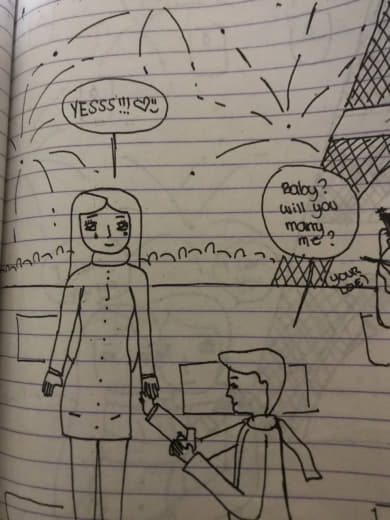 YESSS!!! ♡
Baby?
will you
marry
me?
YOUR
LOVE!